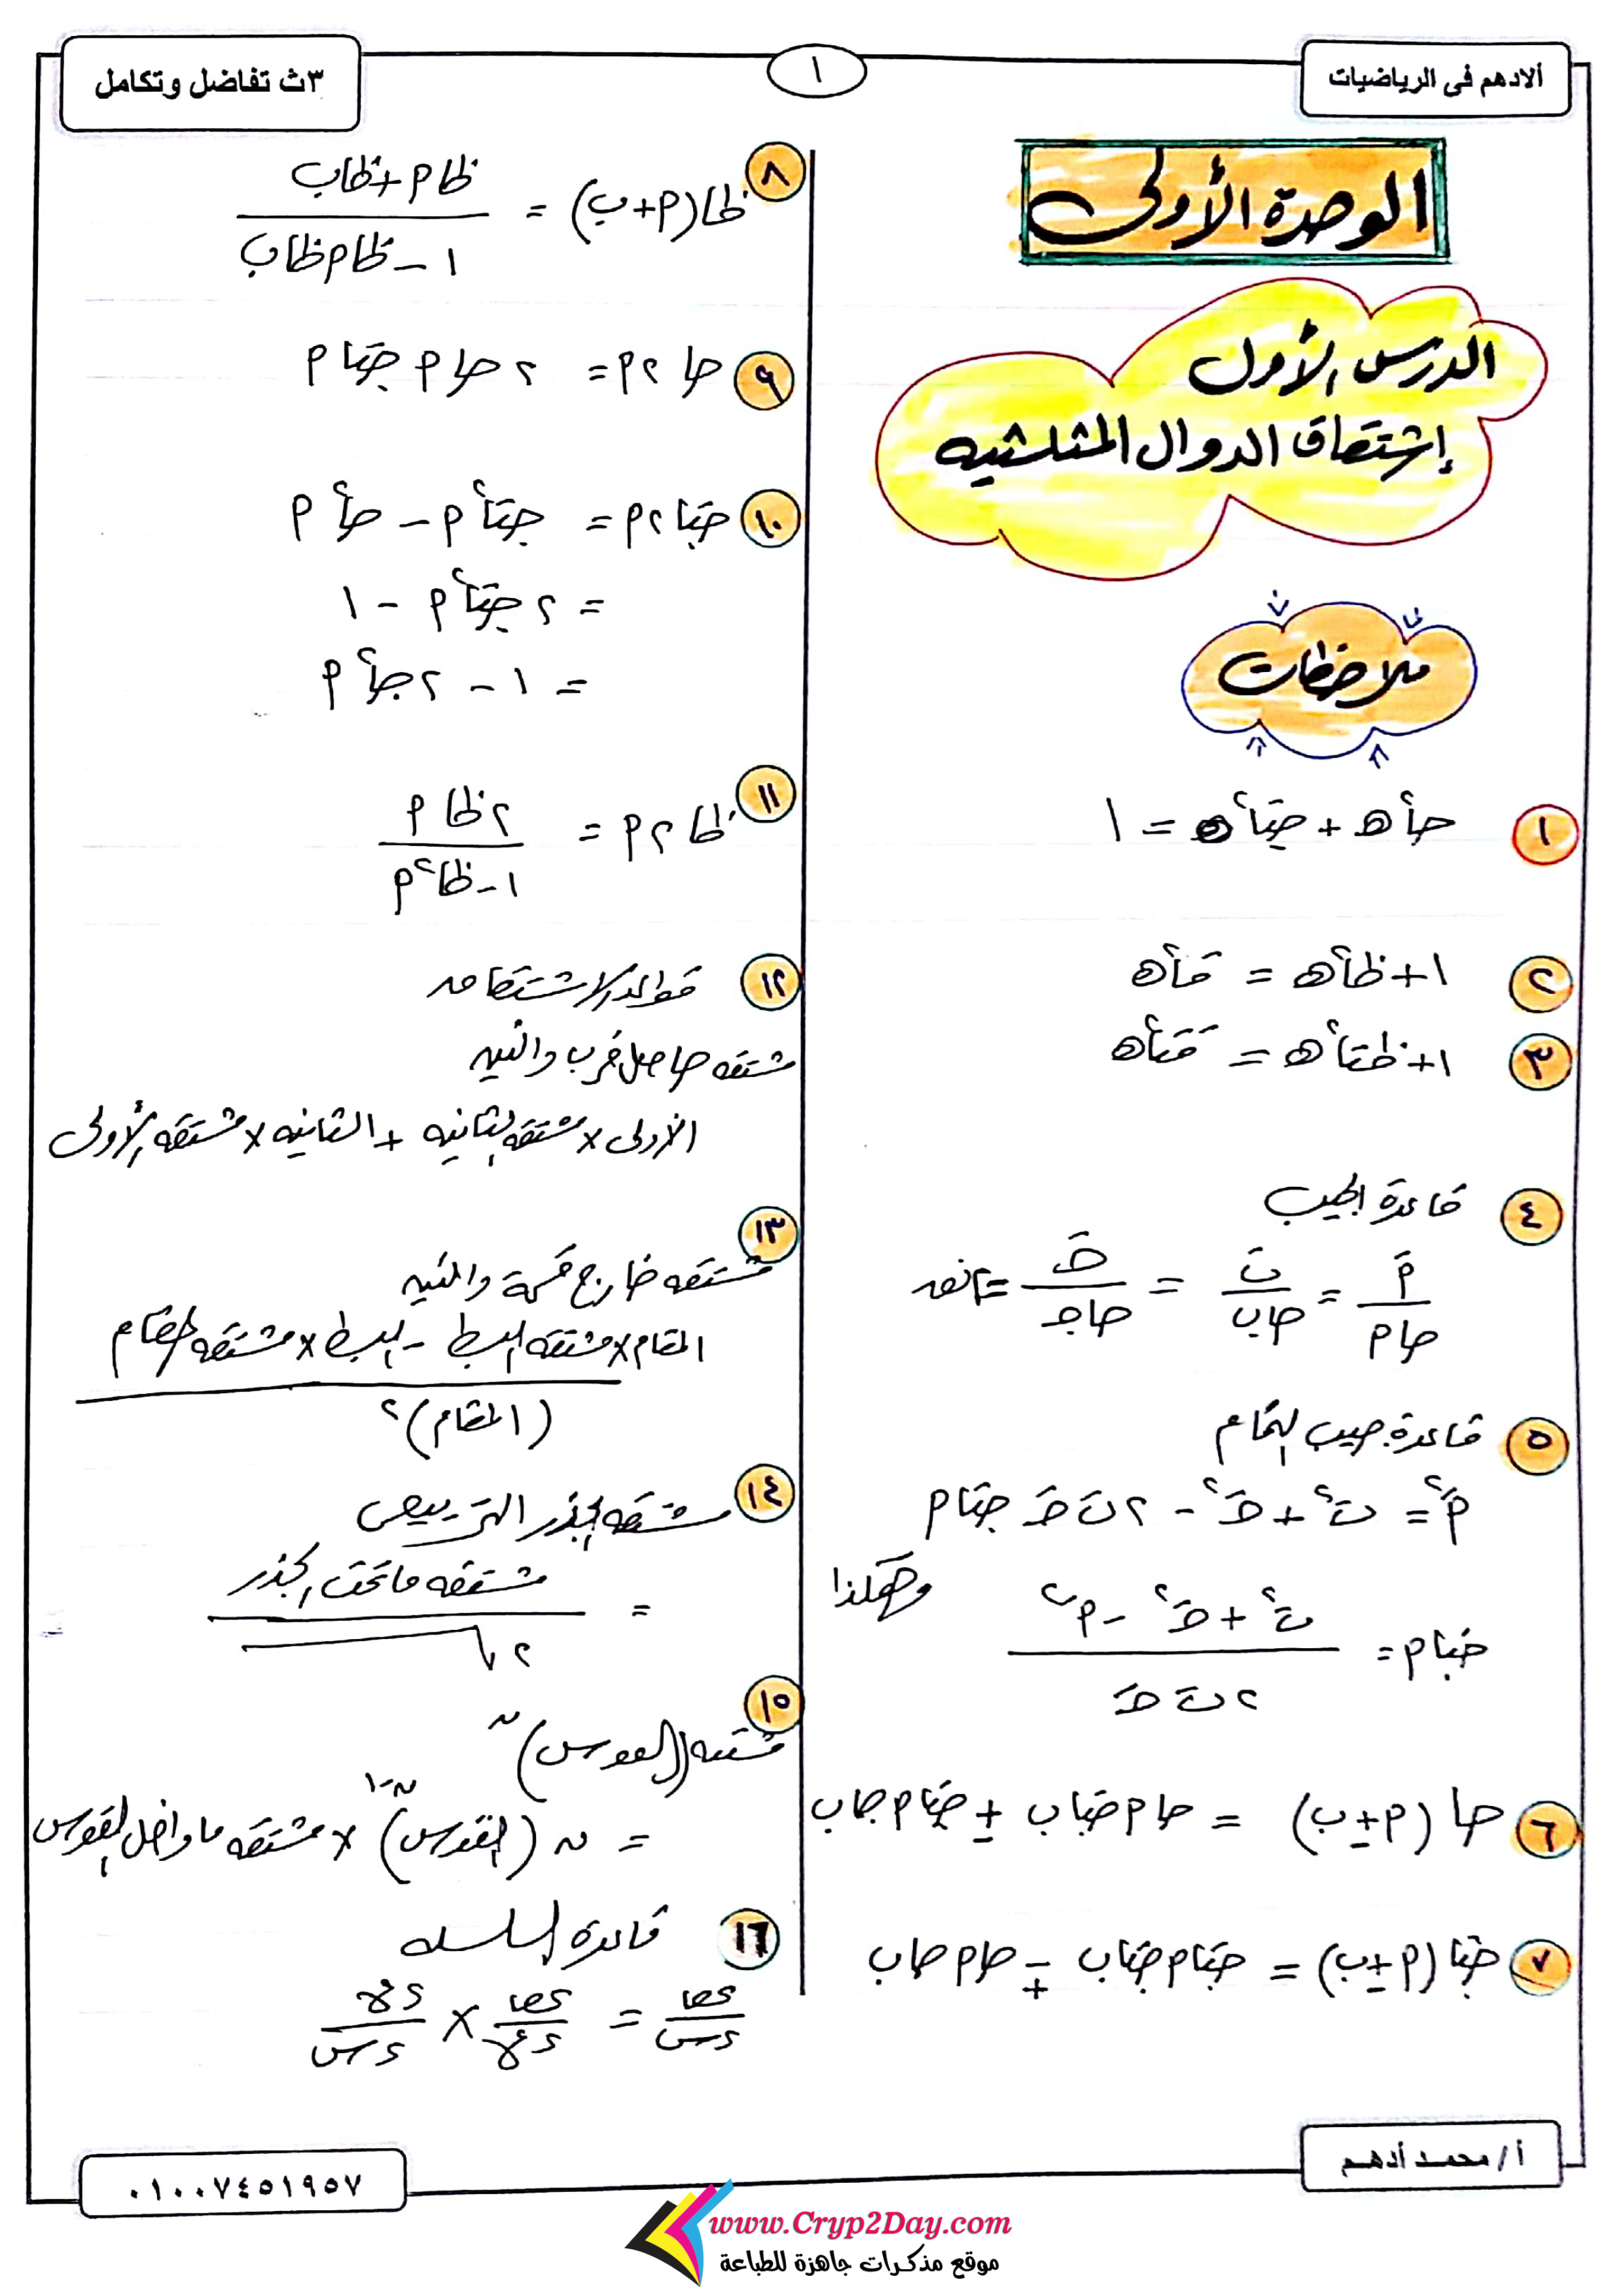 الادهم فى الرياضيات
١
٣ث تفاضل وتكامل
الوحدة الأولى
الدرس الأول
إشتقاق الدوال المثلثيه
ملاحظات
١ حا٢هـ + حتا٢هـ = ١
٢ ١ + ظا٢هـ = قا٢هـ
٣ ١ + ظتا٢هـ = قتا٢هـ
٤ قاعدة الجيب
أَ/حاأ = بَ/حاب = حَـ/حاجـ = ٢نق
٥ قاعدة جيب التمام
أَ٢ = بَ٢ + حَـ٢ - ٢بَ حَـ حتاأ
وهكذا
حتاأ = (بَ٢ + حَـ٢ - أَ٢)/(٢بَ حَـ)
٦ حا(أ±ب) = حاأ حتاب ± حتاأ حاب
٧ حتا(أ±ب) = حتاأ حتاب ∓ حاأ حاب
٨ ظا(أ+ب) = (ظاأ+ظاب)/(١-ظاأ ظاب)
٩ حا٢أ = ٢ حاأ حتاأ
١٠ حتا٢أ = حتا٢أ - حا٢أ
= ٢حتا٢أ - ١
= ١ - ٢حا٢أ
١١ ظا٢أ = ٢ظاأ/(١-ظا٢أ)
١٢ قواعد الاشتقاق
مشتقه حاصل ضرب دالتيه
الأولى × مشتقه الثانيه + الثانيه × مشتقه الأولى
١٣ مشتقه خارج قسمة دالتيه
(المقام × مشتقه البسط - البسط × مشتقه المقام)/(المقام)٢
١٤ مشتقه الجذر التربيعى
= مشتقه ماتحت الجذر/٢√
١٥ مشتقه (القوس)ن
= ن (القوس)ن-١ × مشتقه ماداخل القوس
١٦ قاعدة السلسله
ءص/ءس = ءص/ءع × ءع/ءس
أ/ محمد أدهم
٠١٠٠٧٤٥١٩٥٧
www.Cryp2Day.com
موقع مذكرات جاهزة للطباعة